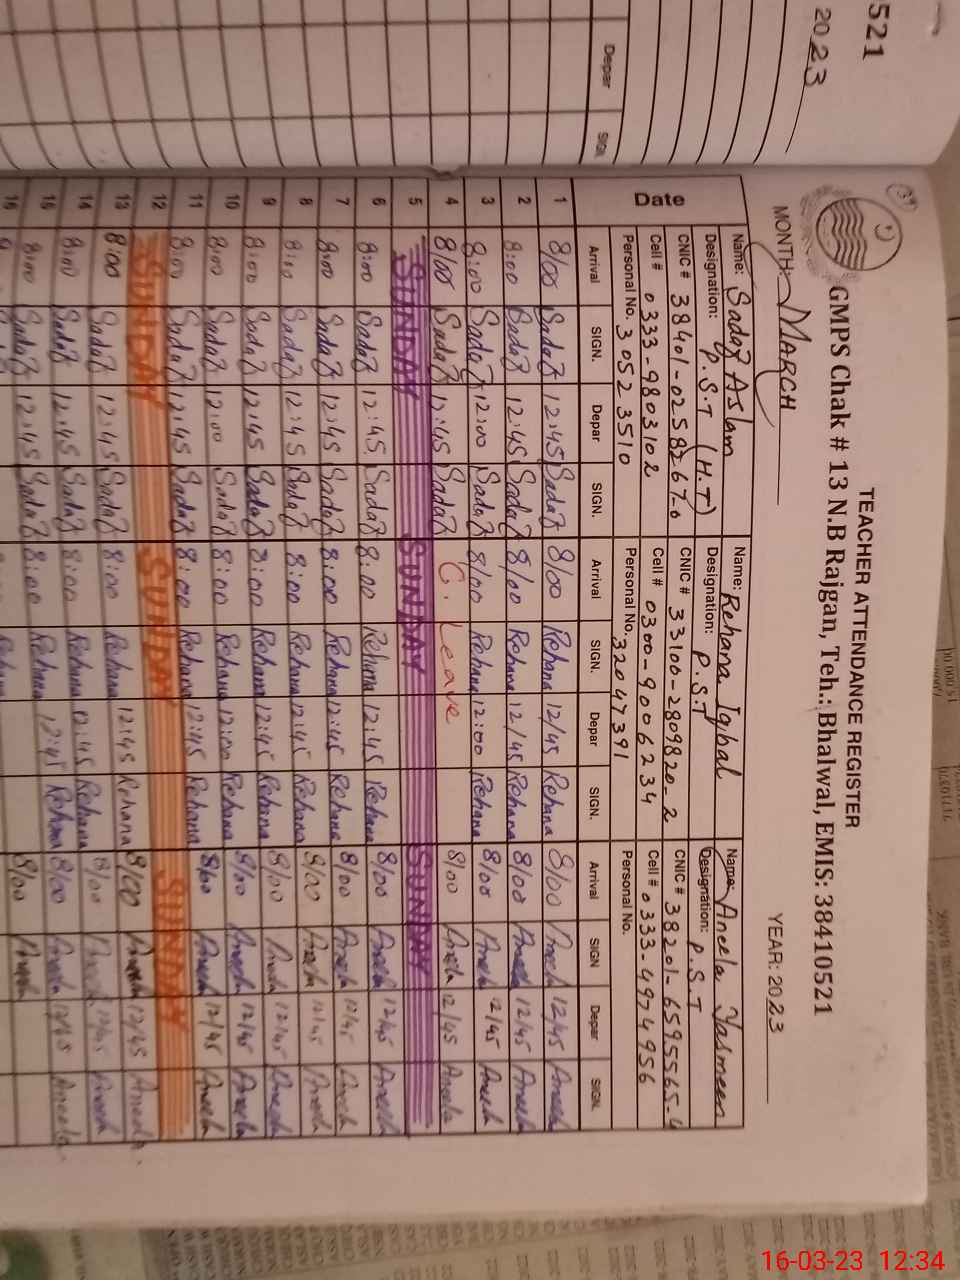 521
2023
Depar
SIGN
TEACHER ATTENDANCE REGISTER
GMPS Chak # 13 N.B Rajgan, Teh.: Bhalwal, EMIS: 38410521
MONTH: MARCH YEAR: 2023
Date
Name: Sadaf Aslam Name: Rehana Iqbal Name: Aneela Yasmeen
Designation: P.S.T (H.T) Designation: P.S.T Designation: P.S.T
CNIC # 38401-0258267-0 CNIC # 33100-2809820-2 CNIC # 38201-6595565-4
Cell # 0333-9803102 Cell # 0300-9006234 Cell # 0333-4974956
Personal No. 30523510 Personal No. 32047391 Personal No.
Arrival SIGN. Depar SIGN. Arrival SIGN. Depar SIGN. Arrival SIGN Depar SIGN.
1 8/00 Sadaf 12:45 Sadaf 8/00 Rehana 12/45 Rehana 8/00 Aneela 12/45 Aneela
2 8:00 Sadaf 12:45 Sadaf 8/00 Rehana 12/45 Rehana 8/00 Aneela 12/45 Aneela
3 8:00 Sadaf 12:00 Sadaf 8/00 Rehana 12:00 Rehana 8/00 Aneela 12/45 Aneela
4 8/00 Sadaf 12:45 Sadaf C. Leave 8/00 Aneela 12/45 Aneela
5 SUNDAY SUNDAY SUNDAY
6 8:00 Sadaf 12:45 Sadaf 8:00 Rehana 12:45 Rehana 8/00 Aneela 12/45 Aneela
7 8:00 Sadaf 12:45 Sadaf 8:00 Rehana 12:45 Rehana 8/00 Aneela 12/45 Aneela
8 Sadaf 12:45 Sadaf 8:00 Rehana 12:45 Rehana 8/00 Aneela 12/45 Aneela
9 8:00 Sadaf 12:45 Sadaf 8:00 Rehana 12:45 Rehana 8/00 Aneela 12/45 Aneela
10 8:00 Sadaf 12:00 Sadaf 8:00 Rehana 12:00 Rehana 8/00 Aneela 12/45 Aneela
11 8:00 Sadaf 12:45 Sadaf 8:00 Rehana 12:45 Rehana 8/00 Aneela 12/45 Aneela
12 SUNDAY SUNDAY SUNDAY
13 8:00 Sadaf 12:45 Sadaf 8:00 Rehana 12:45 Rehana 8/00 Aneela 12/45 Aneela
14 8:00 Sadaf 12:45 Sadaf 8:00 Rehana 12:45 Rehana 8/00 Aneela 12/45 Aneela
15 8:00 Sadaf 12:45 Sadaf 8:00 Rehana 12:45 Rehana 8/00 Aneela 12/45 Aneela
16 Rehana 8/00 Aneela
16-03-23 12:34